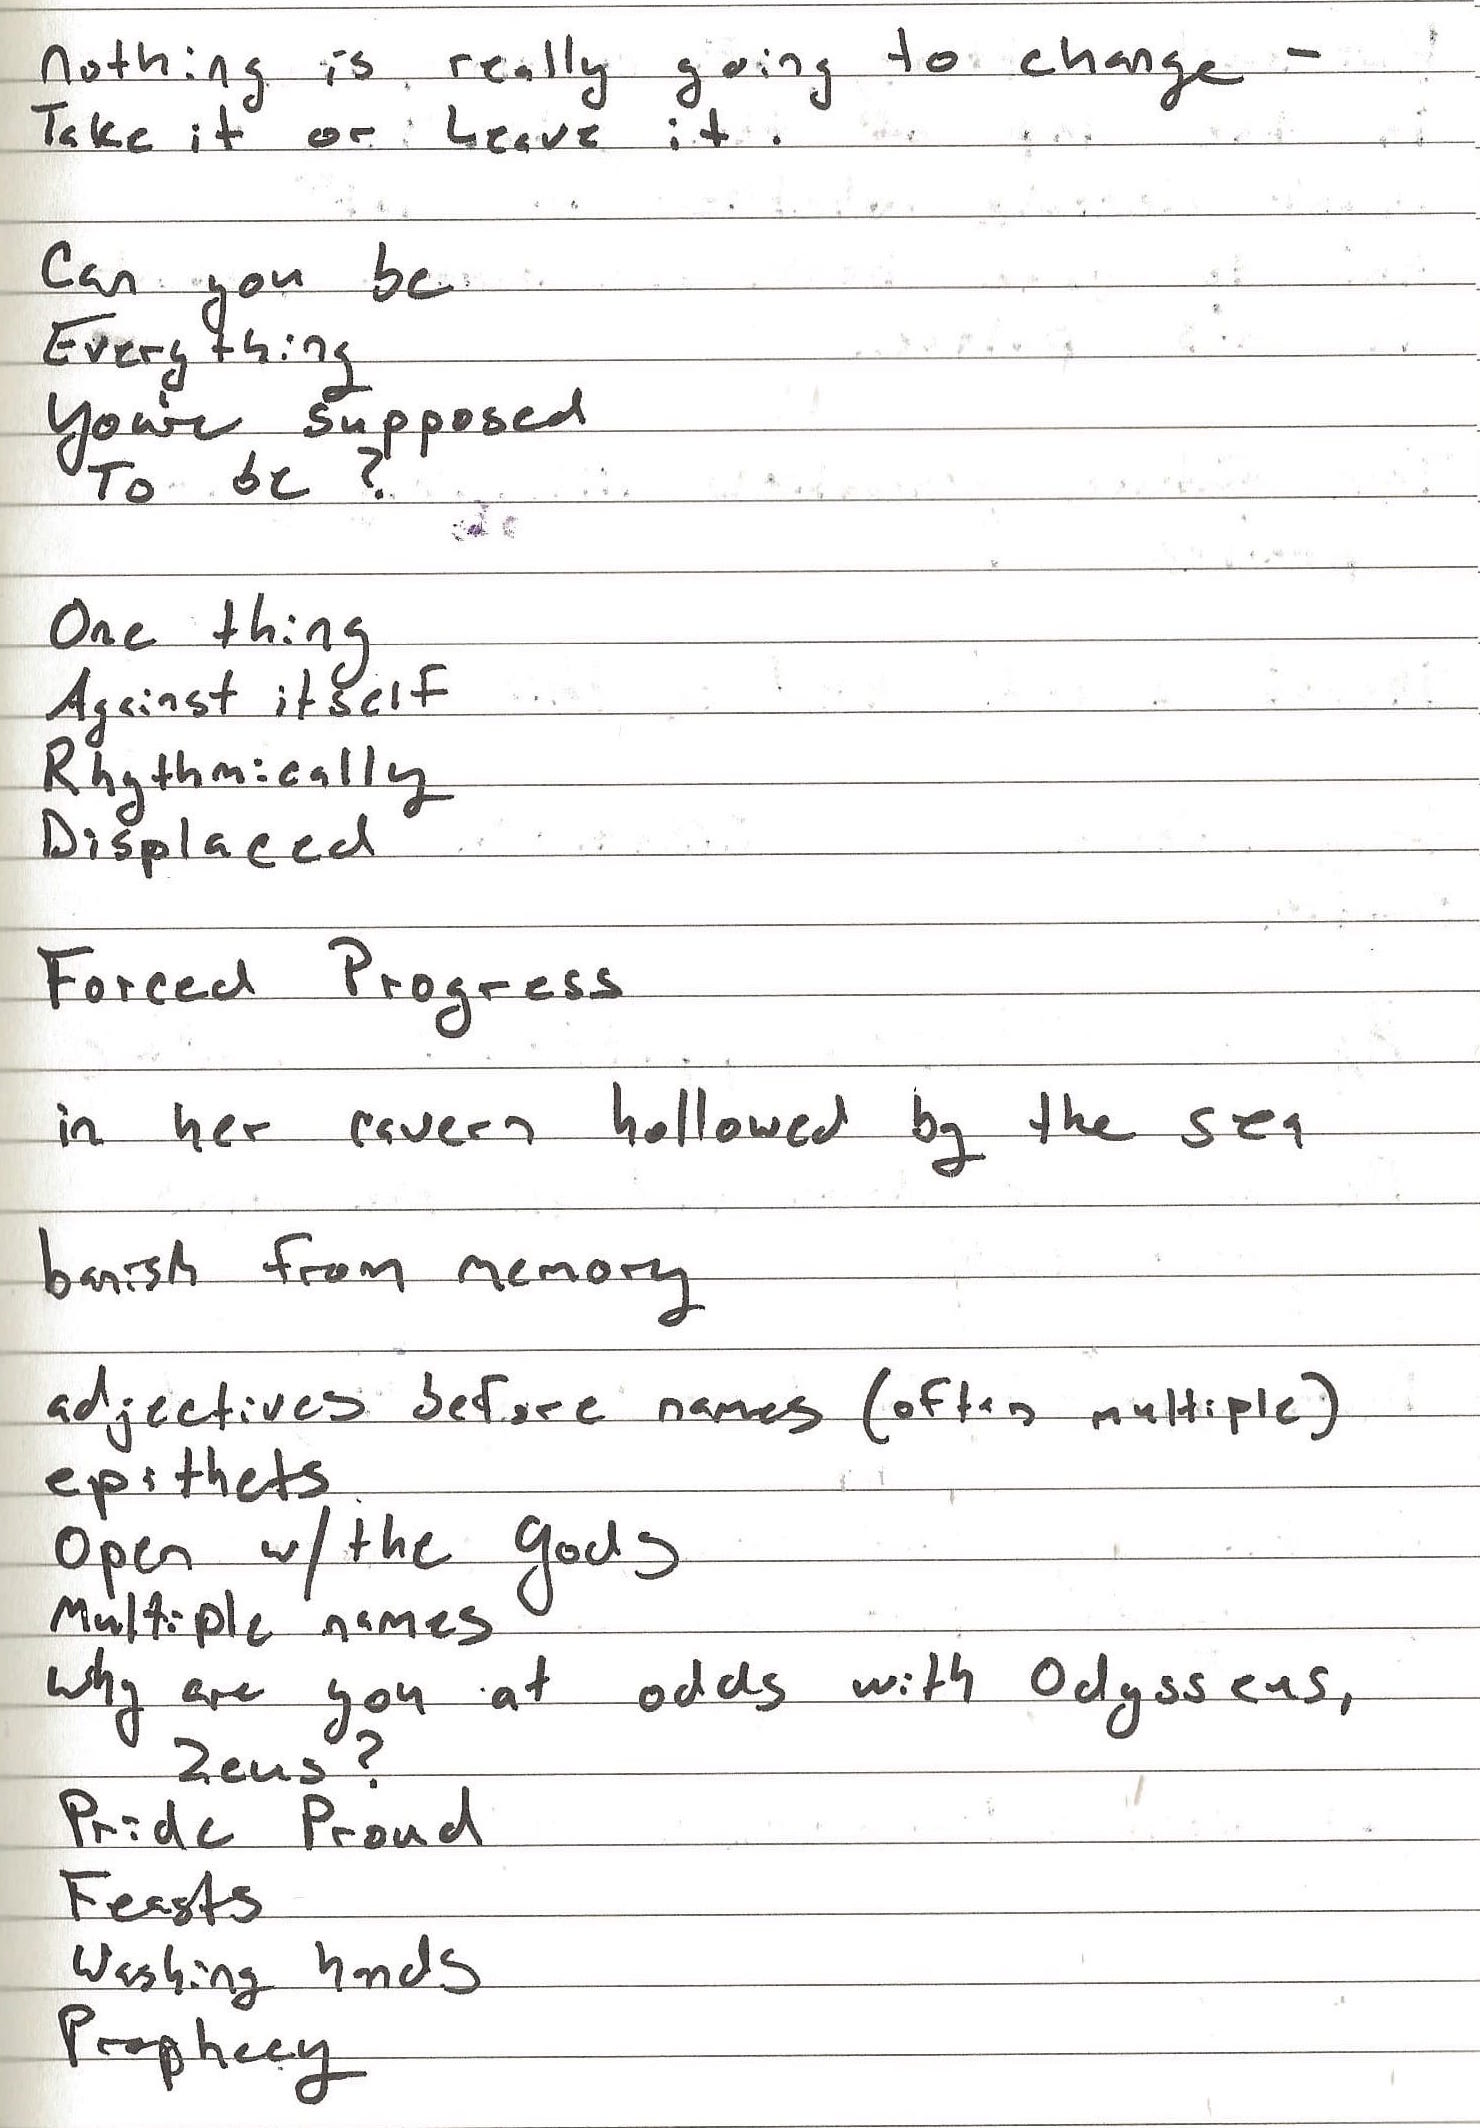 Nothing is really going to change -
Take it or Leave it.
Can you be
Everything
You're supposed
To be?
One thing
Against itself
Rhythmically
Displaced
Forced Progress
in her cavern hollowed by the sea
banish from memory
adjectives before names (often multiple)
epithets
Open w/ the gods
Multiple names
Why are you at odds with Odysseus,
Zeus?
Pride Proud
Feasts
Washing hands
Prophecy